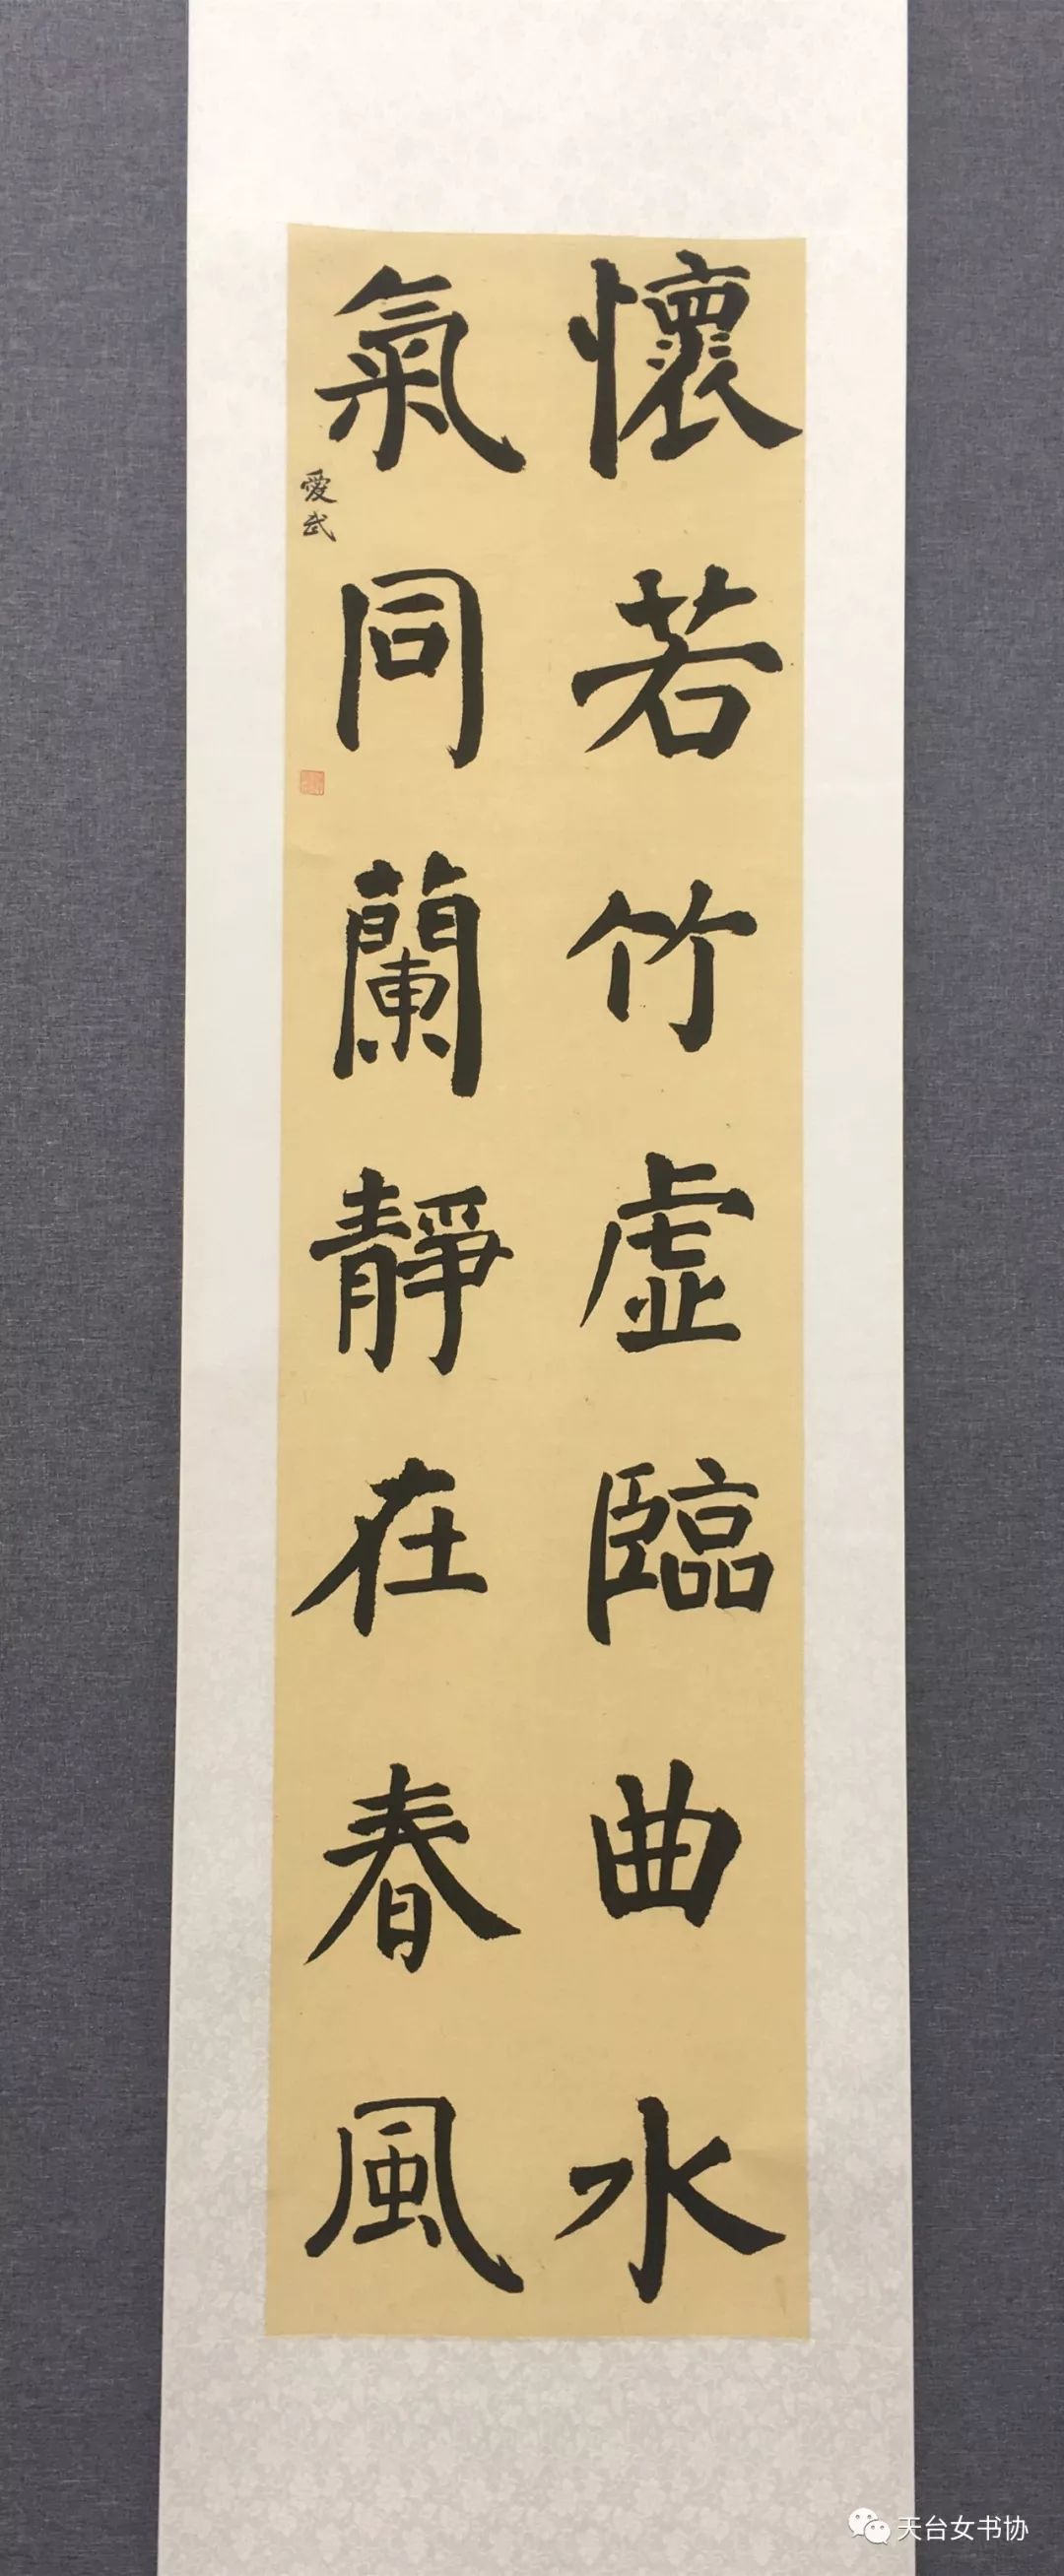 懷若竹虛臨曲水
氣同蘭靜在春風
愛武
天台女书协